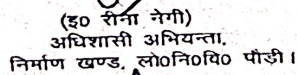 (इ० रीना नेगी)
अधिशासी अभियन्ता,
निर्माण खण्ड, लो०नि०वि० पौड़ी।